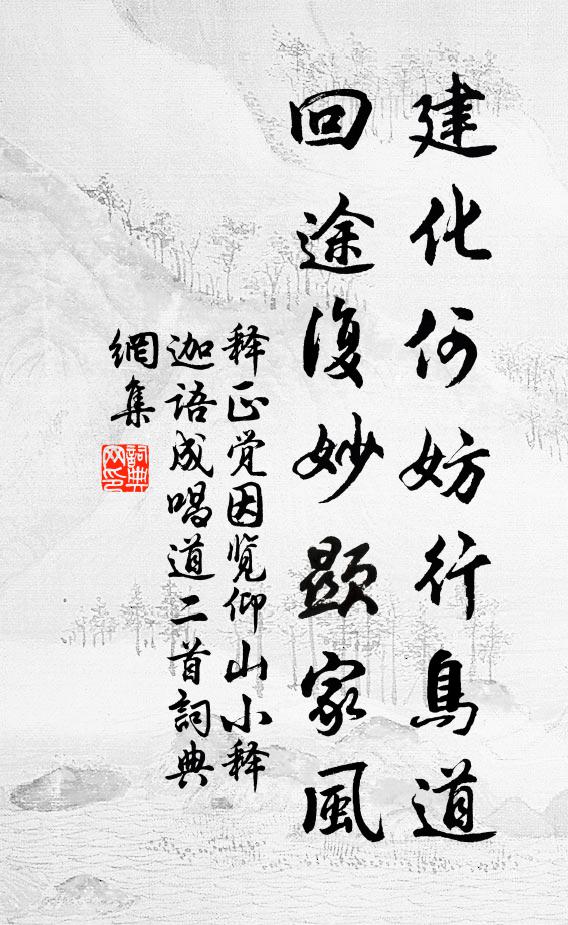 建化何妨行鳥道
回途復妙顯家風
释正觉因览仰山小释
迦语成唱道二首詞典
網集
詞典網印